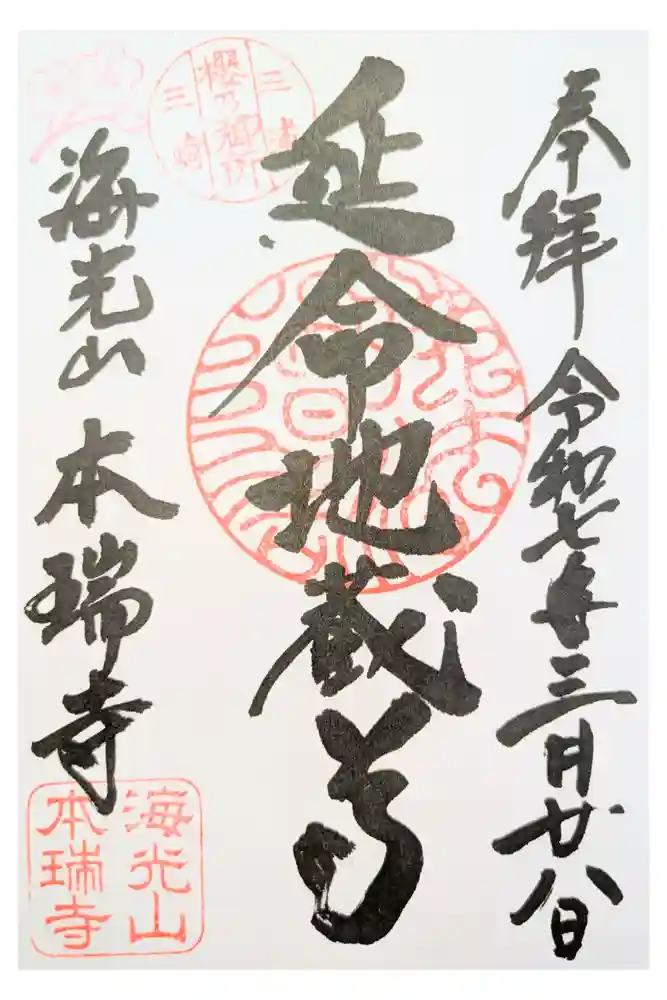 奉拝 令和七年三月廿八日
三浦
櫻乃御所
三崎
延命地蔵尊
海光山 本瑞寺
海光山
本瑞寺